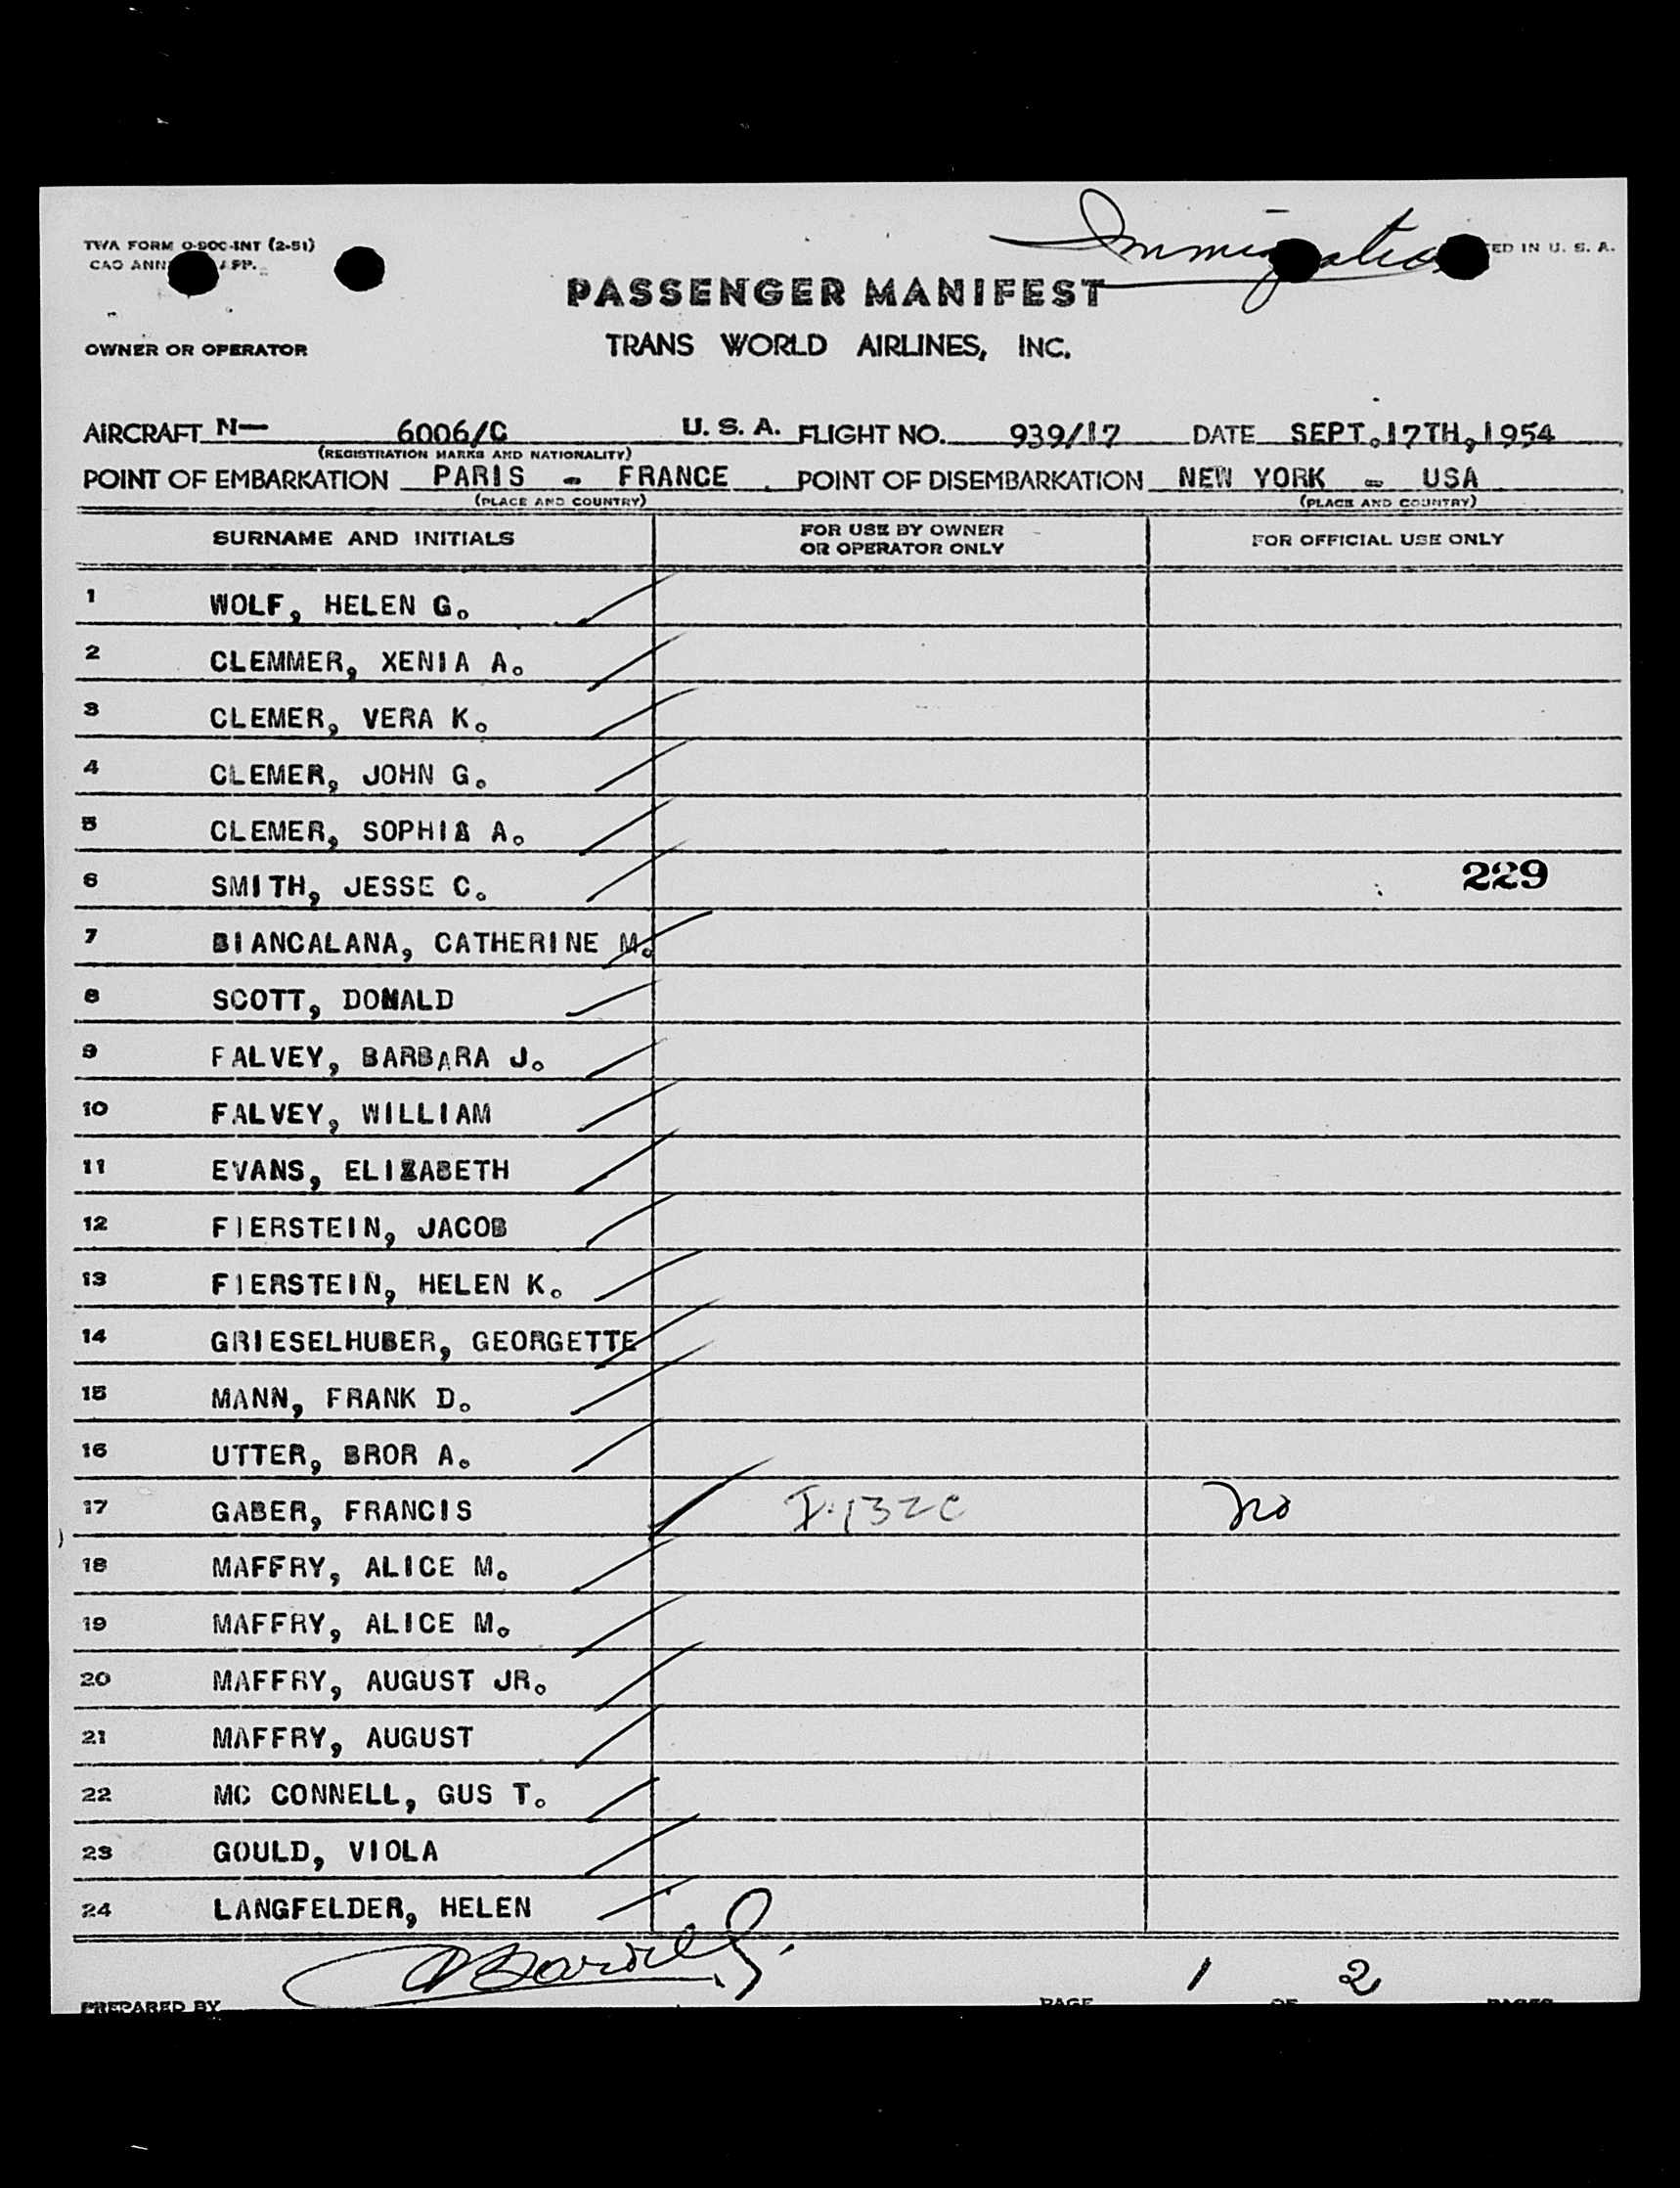 Immigration
TWA FORM O-DOC-INT (2-51)
ED IN U. S. A.
CAO ANN
PASSENGER MANIFEST
OWNER OR OPERATOR TRANS WORLD AIRLINES, INC.
AIRCRAFT N— 6006/C U. S. A. FLIGHT NO. 939/17 DATE SEPT.17TH,1954
(REGISTRATION MARKS AND NATIONALITY)
POINT OF EMBARKATION PARIS - FRANCE POINT OF DISEMBARKATION NEW YORK - USA
(PLACE AND COUNTRY) (PLACE AND COUNTRY)
SURNAME AND INITIALS FOR USE BY OWNER OR OPERATOR ONLY FOR OFFICIAL USE ONLY
1 WOLF, HELEN G.
2 CLEMMER, XENIA A.
3 CLEMER, VERA K.
4 CLEMER, JOHN G.
5 CLEMER, SOPHIA A.
6 SMITH, JESSE C. 229
7 BIANCALANA, CATHERINE M.
8 SCOTT, DONALD
9 FALVEY, BARBARA J.
10 FALVEY, WILLIAM
11 EVANS, ELIZABETH
12 FIERSTEIN, JACOB
13 FIERSTEIN, HELEN K.
14 GRIESELHUBER, GEORGETTE
15 MANN, FRANK D.
16 UTTER, BROR A.
17 GABER, FRANCIS I-132C no
18 MAFFRY, ALICE M.
19 MAFFRY, ALICE M.
20 MAFFRY, AUGUST JR.
21 MAFFRY, AUGUST
22 MC CONNELL, GUS T.
23 GOULD, VIOLA
24 LANGFELDER, HELEN
PREPARED BY PAGE 1 OF 2 PAGES